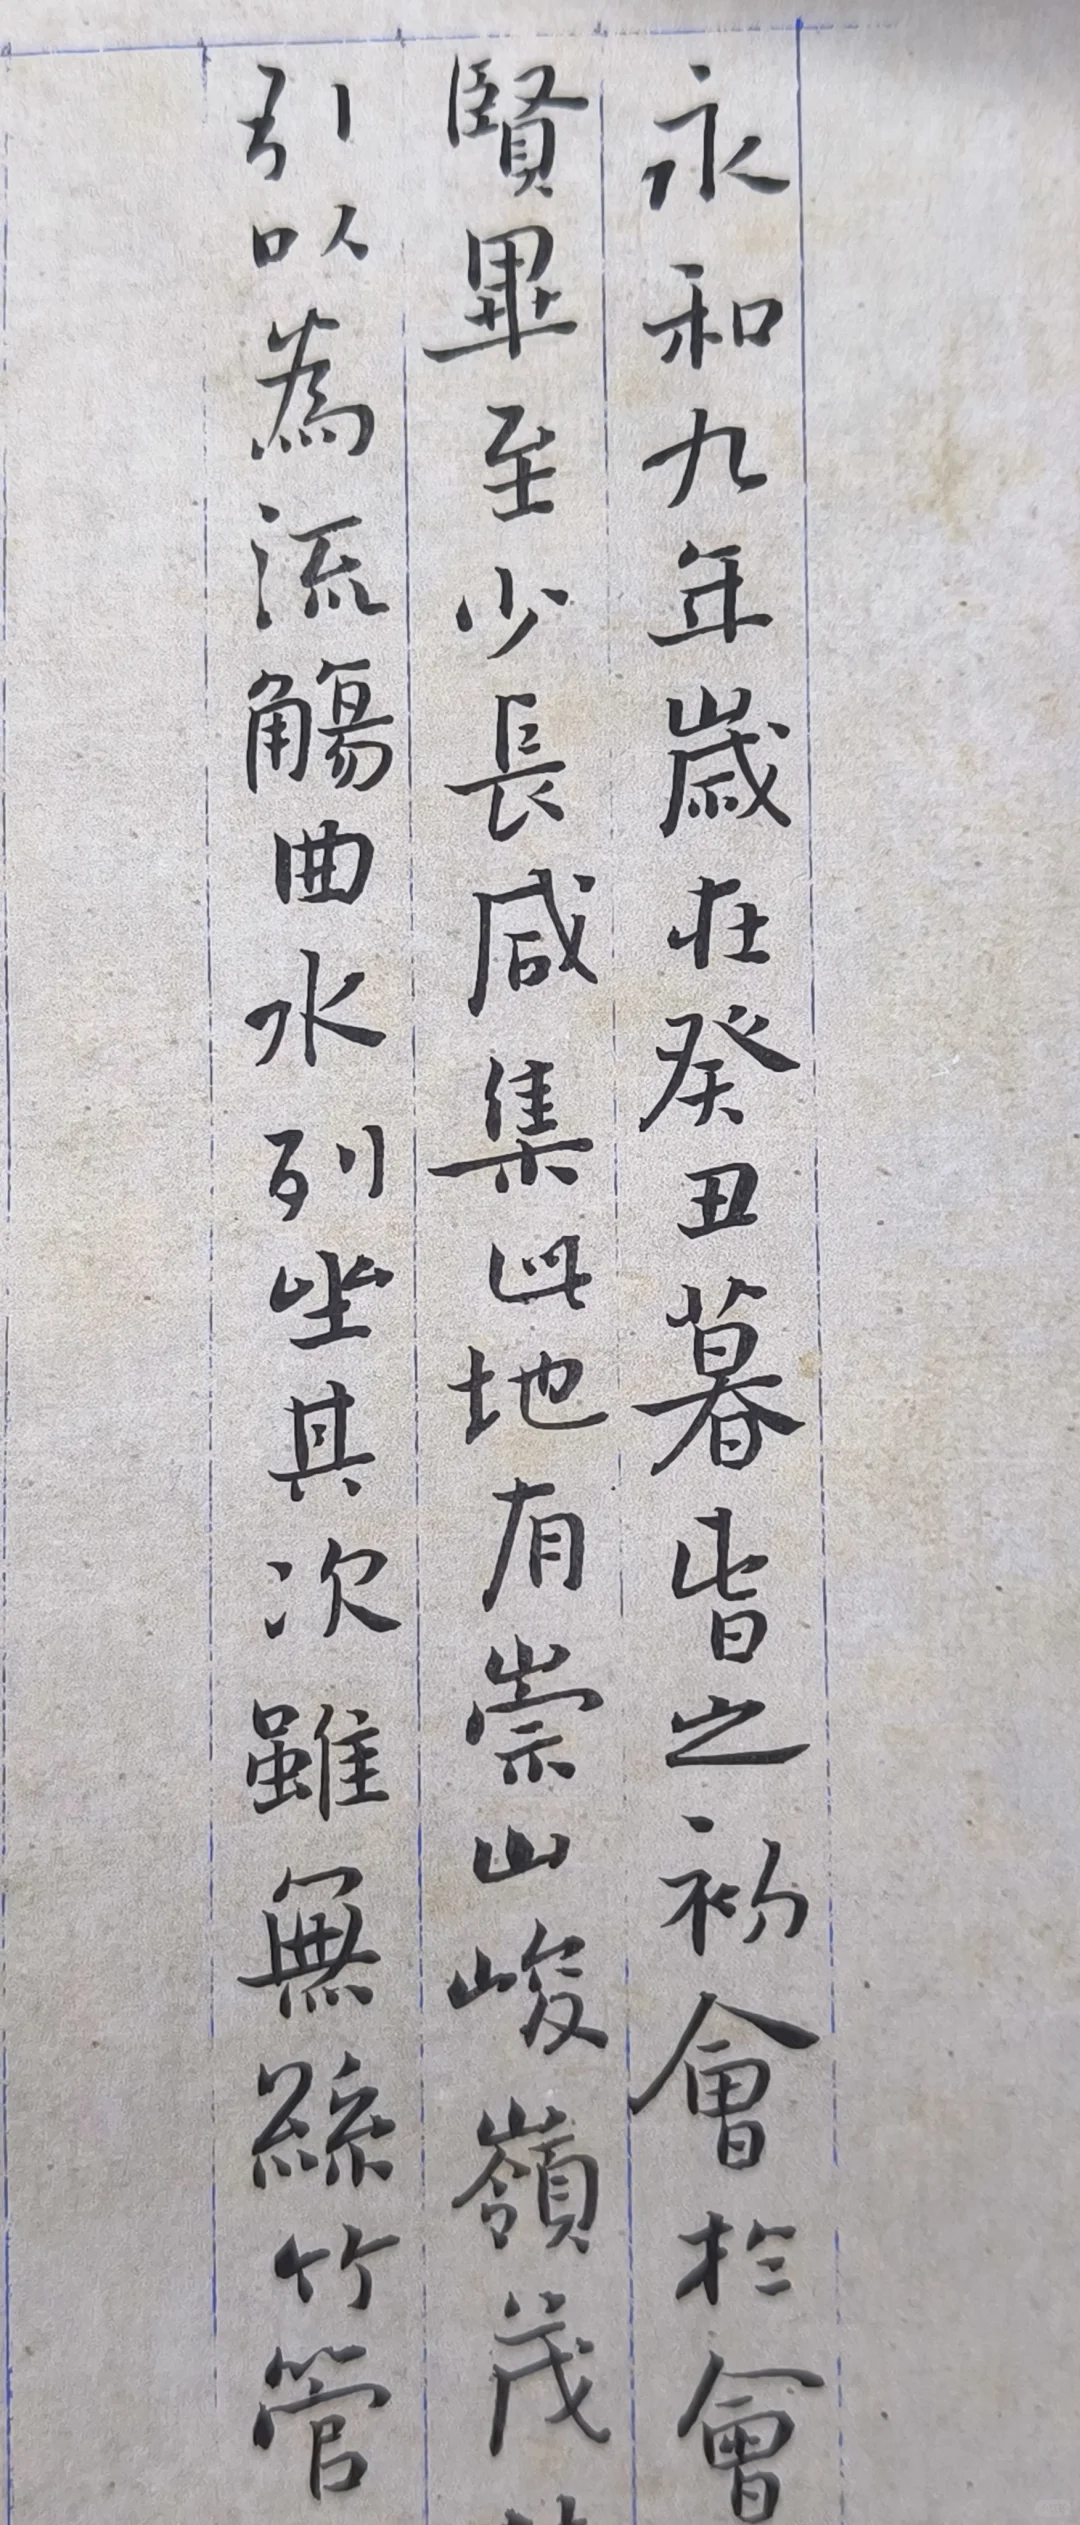 永和九年歲在癸丑暮春之初會於會
賢畢至少長咸集此地有崇山峻嶺茂
引以為流觴曲水列坐其次雖無絲竹管